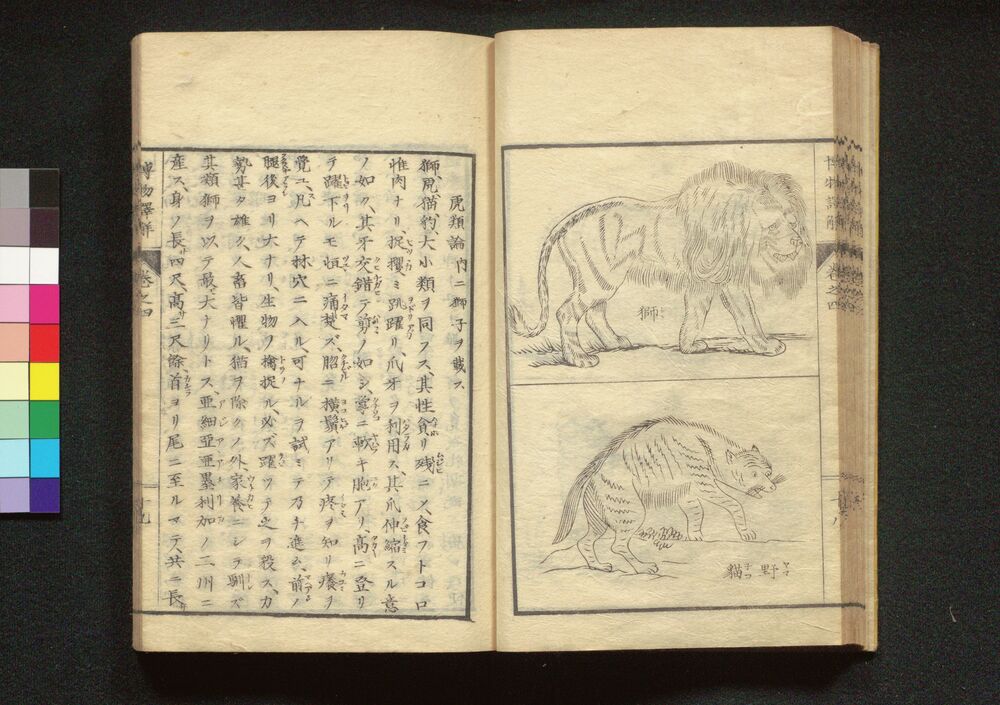 獅
野貓
虎類論 内ニ獅子ヲ載ス
獅、虎、猫、豹、大小類ヲ同フス、其性貪リ残ニメ、食フトコロ
惟肉ナリ、捉攫ミ趴躍リ、爪牙ヲ利用ス、其爪伸縮スル意
ノ如ク、其牙交錯テ剪ノ如シ、掌ニ軟キ胞アリ、高ニ登リ
テ躍下ルモ恒ニ痛楚ズ、䏮ニ横鬚アリテ疼ヲ知リ癢ヲ
覺ユ、凡ヘテ林穴ニ入ル可ナルヲ試ミテ乃チ進ム、前ノ
腿後ヨリ大ナリ、生物ヲ擒捉ル、必ズ躍ツテ之ヲ殺ス、力
勢甚タ雄ク、人畜皆懼ル、猫ヲ除クノ外、家養ニシテ馴ズ
其類獅ヲ以テ最大ナリトス、亜細亜亜墨利加ノ二州ニ
産ス、身ノ長四尺、高三尺餘、首ヨリ尾ニ至ルマテ、共ニ長
博物譯解 巻之四
十九